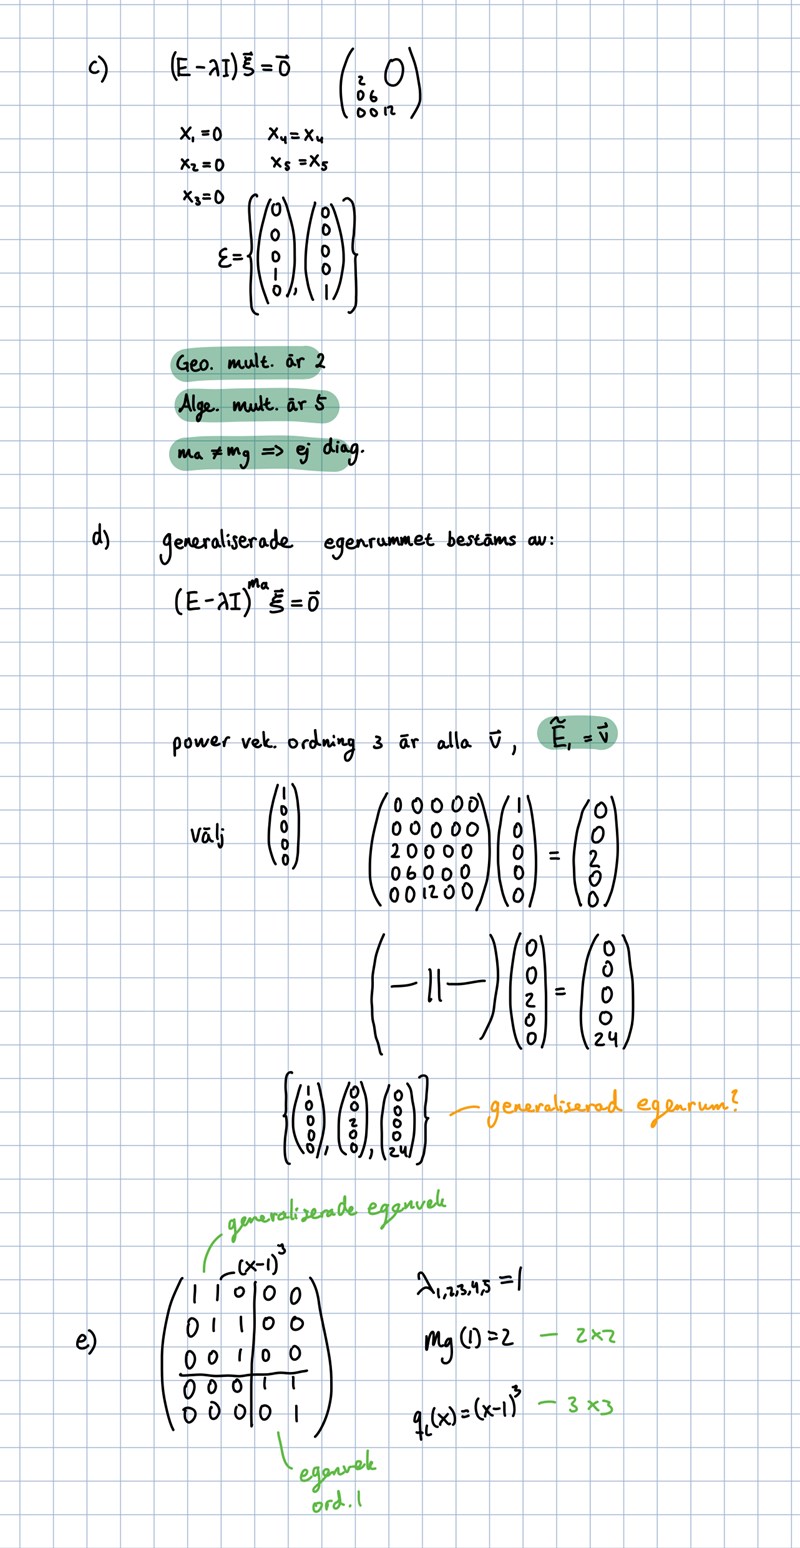 c) (E-λI)ξ⃗=0⃗ ( 2 0
0 6
0 0 12 )
x₁=0 x₄=x₄
x₂=0 x₅=x₅
x₃=0
ε={(0 0 0 1 0), (0 0 0 0 1)}
Geo. mult. är 2
Alge. mult. är 5
ma ≠ mg => ej diag.
d) generaliserade egenrummet bestäms av:
(E-λI)^ma ξ⃗=0⃗
power vek. ordning 3 är alla v⃗, Ẽ₁ = v⃗
Välj (1 0 0 0 0)
(0 0 0 0 0
0 0 0 0 0
2 0 0 0 0
0 6 0 0 0
0 0 12 0 0) (1 0 0 0 0) = (0 0 2 0 0)
( —||— ) (0 0 2 0 0) = (0 0 0 0 24)
{(1 0 0 0 0), (0 0 2 0 0), (0 0 0 0 24)} — generaliserad egenrum?
generaliserade egenvek
(x-1)³
e) (1 1 0 0 0
0 1 1 0 0
0 0 1 0 0
0 0 0 1 1
0 0 0 0 1)
λ₁,₂,₃,₄,₅ = 1
mg(1)=2 — 2x2
q_L(x)=(x-1)³ — 3x3
egenvek
ord. 1